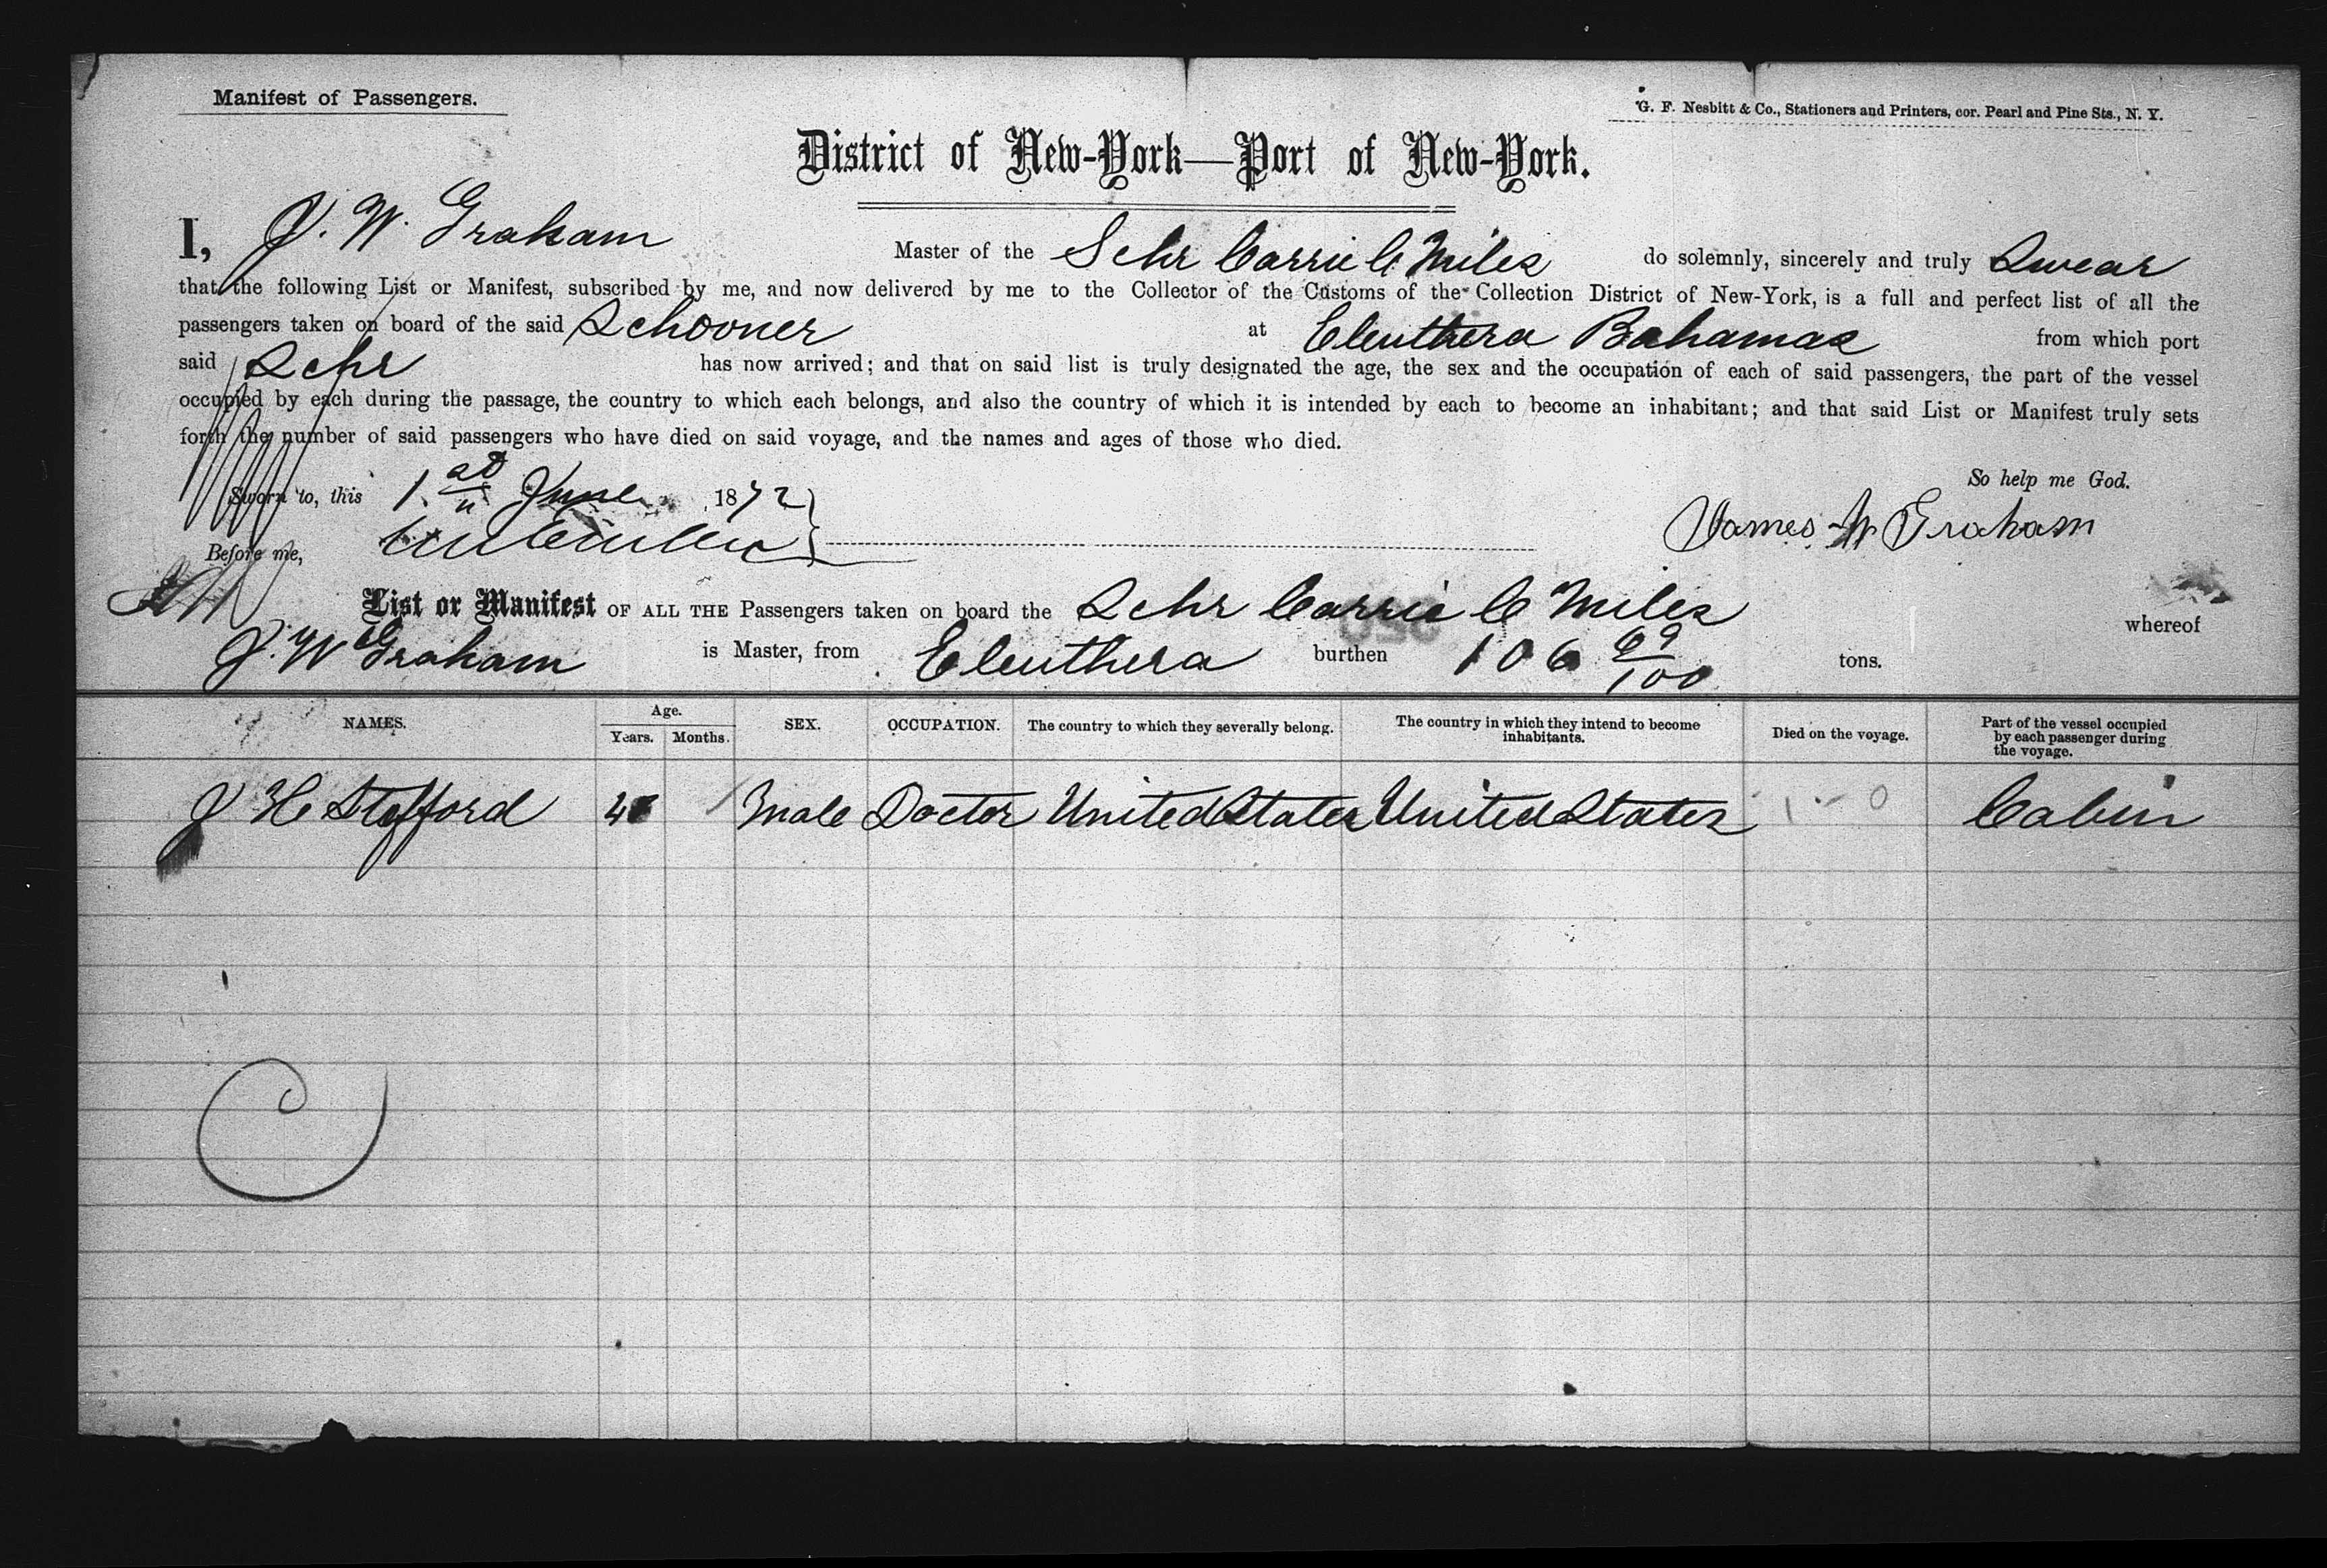 Manifest of Passengers.
G. F. Nesbitt & Co., Stationers and Printers, cor. Pearl and Pine Sts., N. Y.
District of New-York—Port of New-York.
I, J. W. Graham Master of the Schr Carrie C. Miles do solemnly, sincerely and truly Swear
that the following List or Manifest, subscribed by me, and now delivered by me to the Collector of the Customs of the Collection District of New-York, is a full and perfect list of all the
passengers taken on board of the said Schooner at Eleuthera Bahamas from which port
said Schr has now arrived; and that on said list is truly designated the age, the sex and the occupation of each of said passengers, the part of the vessel
occupied by each during the passage, the country to which each belongs, and also the country of which it is intended by each to become an inhabitant; and that said List or Manifest truly sets
forth the number of said passengers who have died on said voyage, and the names and ages of those who died.
So help me God.
Sworn to, this 1st June 1872
James W Graham
Before me,
List or Manifest OF ALL THE Passengers taken on board the Schr Carrie C Miles whereof
J. W Graham is Master, from Eleuthera burthen 106 69/100 tons.
NAMES. Age. Years. Months. SEX. OCCUPATION. The country to which they severally belong. The country in which they intend to become inhabitants. Died on the voyage. Part of the vessel occupied by each passenger during the voyage.
J H Stafford Male Doctor United States United States Cabin